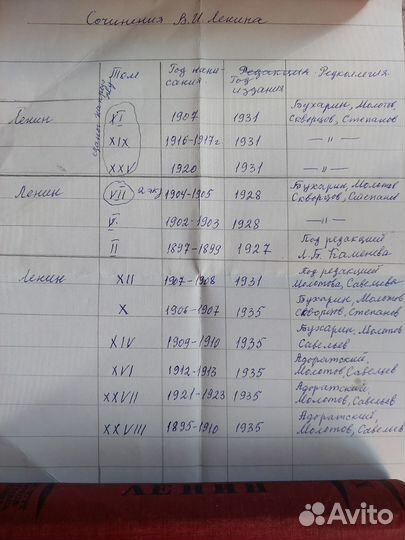 Сочинения В.И. Ленина
Том Год написания. Год издания Редколлегия.
Ленин XI 1907 1931 Бухарин, Молотов, Скворцов, Степанов
XIX 1916-1917г 1931 — " —
XXV 1920 1931 — " —
Ленин VII 2 экз 1904-1905 1928 Бухарин, Молотов Скворцов, Степанов
V. 1902-1903 1928 — " —
II 1897-1899 1927 Под редакцией Л.Б. Каменева
Ленин XII 1907-1908 1931 Под редакцией Молотова, Савельева
X 1906-1907 1935 Бухарин, Молотов Скворцов, Степанов
XIV 1909-1910 1935 Бухарин, Молотов Савельев
XVI 1912-1913 1935 Адоратский Молотов, Савельев
XXVII 1921-1923 1935 Адоратский Молотов, Савельев
XXVIII 1895-1910 1935 Адоратский, Молотов, Савельев
ЛЕНИН
Avito